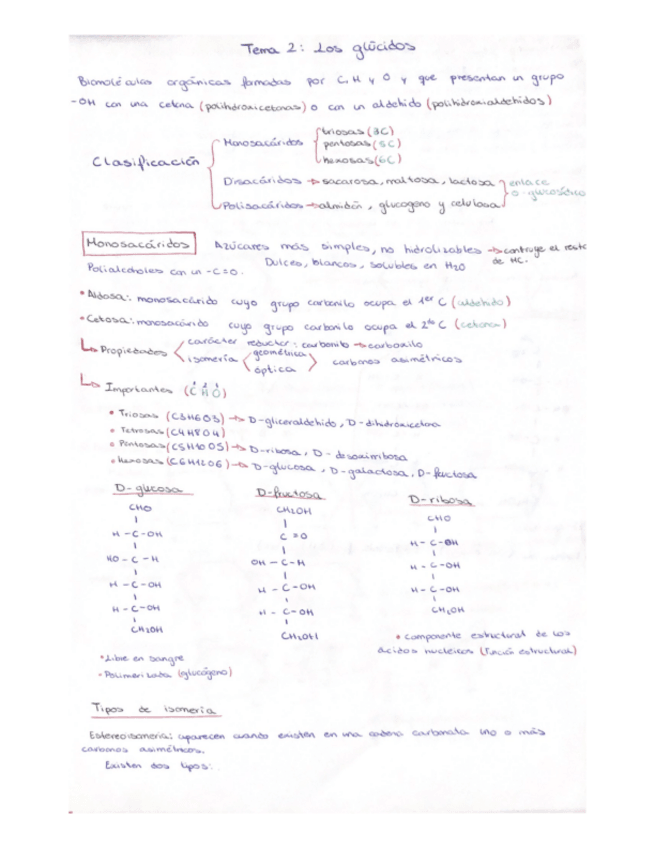 Tema 2: Los glúcidos
Biomoléculas orgánicas formadas por C, H y O y que presentan un grupo
-OH con una cetona (polihidroxicetonas) o con un aldehido (polihidroxialdehidos)
Clasificación
Monosacáridos
triosas (3C)
pentosas (5C)
hexosas (6C)
Disacáridos → sacarosa, maltosa, lactosa
Polisacáridos → almidón, glucogeno y celulosa
enlace
o-glucosídico
Monosacáridos Azúcares más simples, no hidrolizables → contruye el resto
de HC.
Dulces, blancos, solubles en H2O
Polialcoholes con un -C=O.
• Aldosa: monosacárido cuyo grupo carbonilo ocupa el 1er C (aldehido)
• Cetosa: monosacárido cuyo grupo carbonilo ocupa el 2do C (cetona)
↳ Propiedades
carácter reductor: carbonilo → carboxilo
isomería
geométrica
óptica
carbonos asimétricos
↳ Importantes (C H O)
1 2 1
• Triosas (C3H6O3) → D-gliceraldehido, D-dihidroxicetona
• Tetrosas (C4H8O4)
• Pentosas (C5H10O5) → D-ribosa, D-desoxirribosa
• Hexosas (C6H12O6) → D-glucosa, D-galactosa, D-fructosa
D-glucosa
CHO
H-C-OH
HO-C-H
H-C-OH
H-C-OH
CH2OH
• Libre en sangre
• Polimerizada (glucógeno)
D-fructosa
CH2OH
C=O
OH-C-H
H-C-OH
H-C-OH
CH2OH
D-ribosa
CHO
H-C-OH
H-C-OH
H-C-OH
CH2OH
• componente estructural de los
ácidos nucleicos (función estructural)
Tipos de isomería
Estereoisomería: aparecen cuando existen en una cadena carbonata uno o más
carbonos asimétricos.
Existen dos tipos: